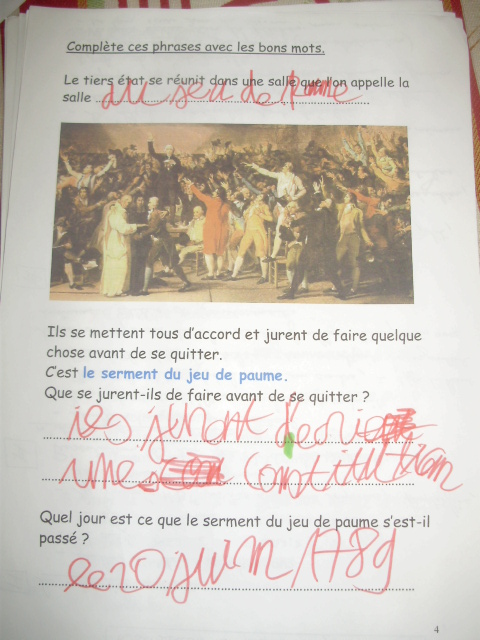 Complète ces phrases avec les bons mots.
Le tiers état se réunit dans une salle que l'on appelle la
salle du jeu de Paume
Ils se mettent tous d'accord et jurent de faire quelque
chose avant de se quitter.
C'est le serment du jeu de paume.
Que se jurent-ils de faire avant de se quitter ?
ies jurent d'ecrie
une constitution
Quel jour est ce que le serment du jeu de paume s'est-il
passé ?
le 20 juin 1789
4